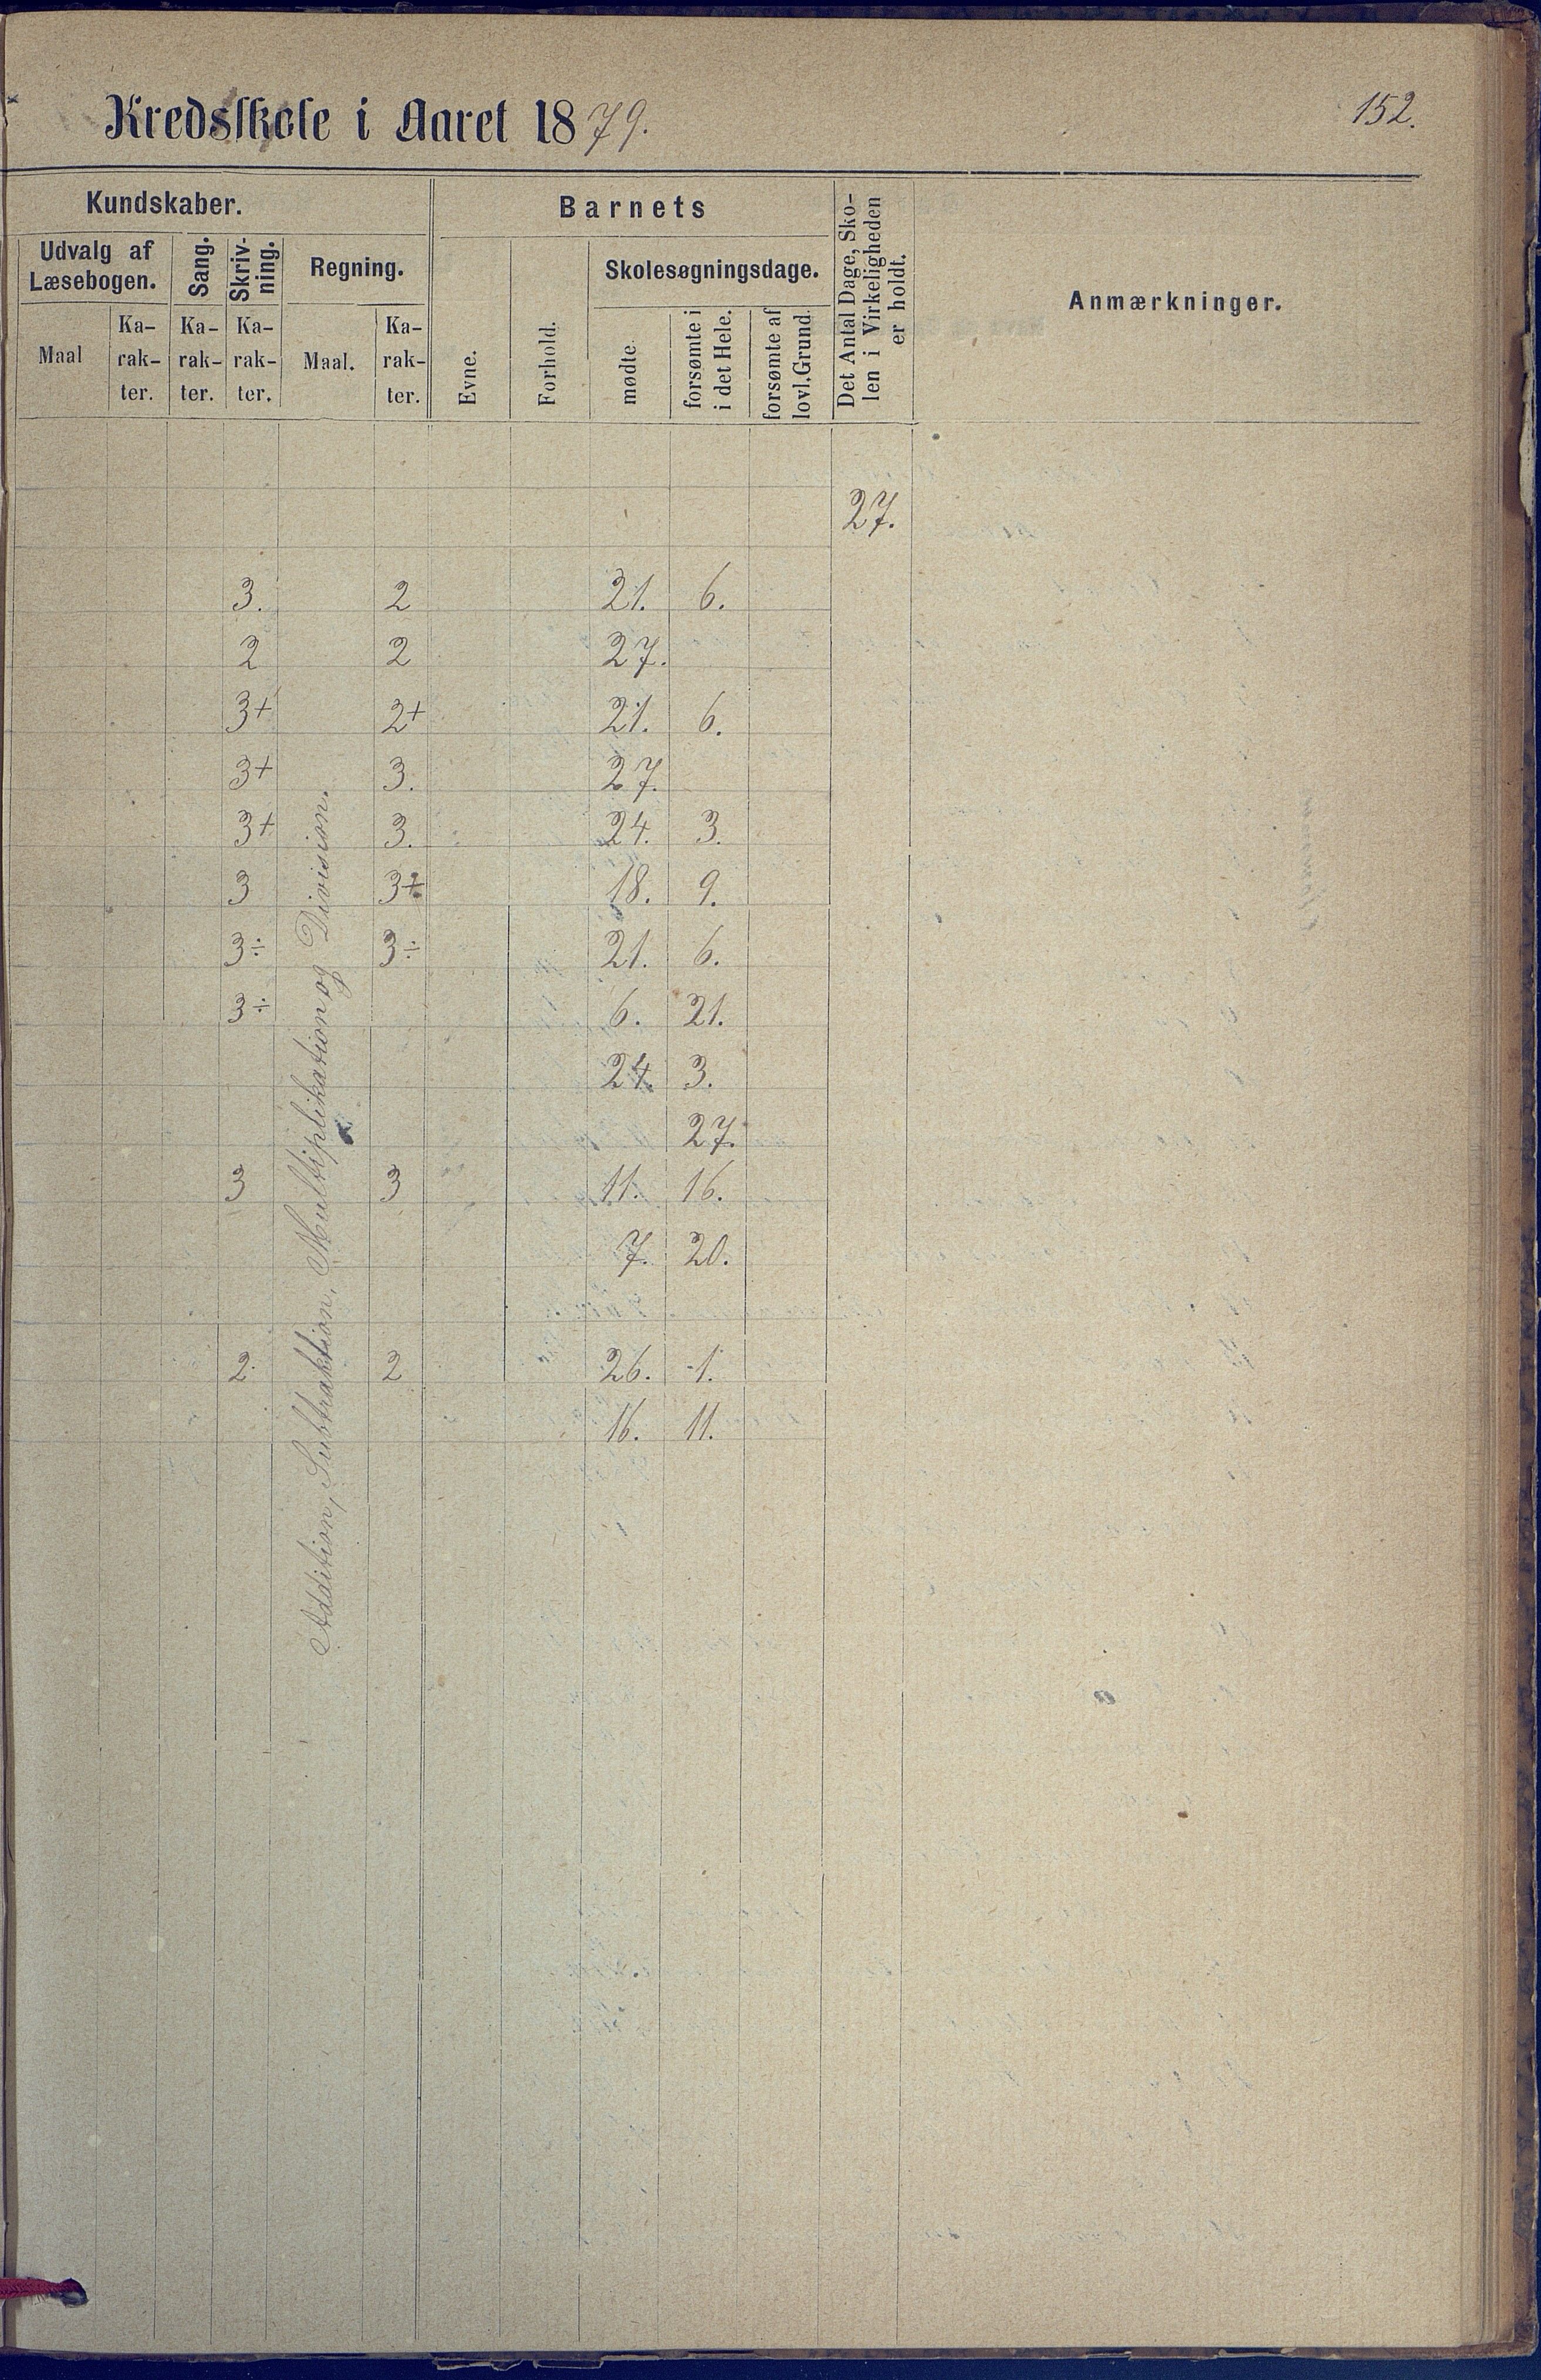 Kredsskole i Aaret 1879.
152.
Kundskaber.
Barnets
Det Antal Dage, Sko-
len i Virkeligheden
er holdt.
Anmærkninger.
Udvalg af
Læsebogen.
Sang.
Skriv-
ning.
Regning.
Evne.
Forhold.
Skolesøgningsdage.
Maal
Ka-
rak-
ter.
Ka-
rak-
ter.
Ka-
rak-
ter.
Maal.
Ka-
rak-
ter.
mødte
forsømte i
i det Hele.
forsømte af
lovl. Grund.
27.
3. 2 21. 6.
2 2 27.
3+ 2+ 21. 6.
3+ 3. 27.
3+ 3. 24. 3.
3 3+ 18. 9.
3÷ 3÷ 21. 6.
3÷ 6. 21.
24. 3.
27.
3 3 11. 16.
7. 20.
2. 2 26. 1.
16. 11.
Addition, Subtraktion, Multiplikation og Division.